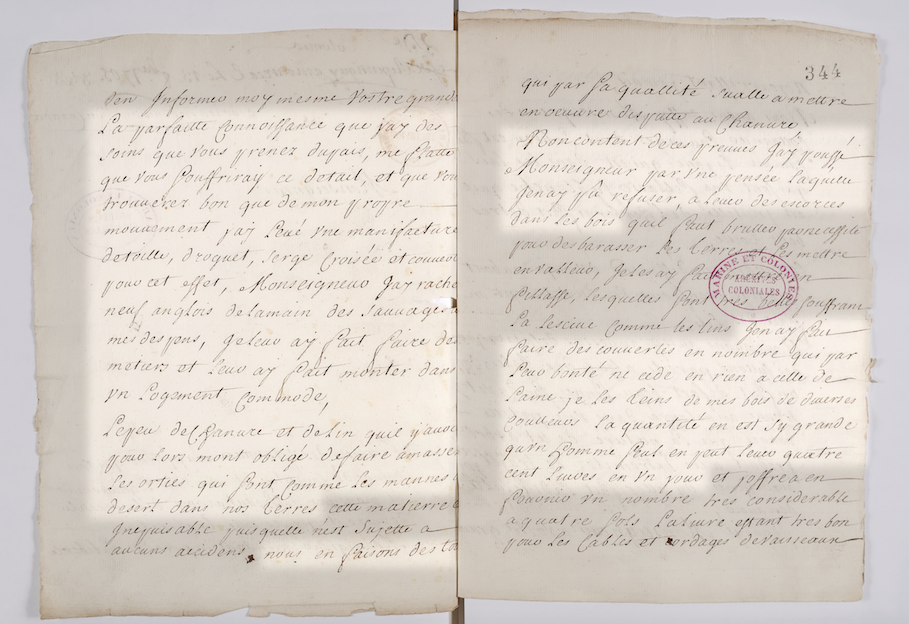 den Informer moy mesme Vostre grand
La parfaitte Connoissance que j'ay des
soins que vous prenez dupais, me flatte
que vous souffriray ce detail, et que vou
trouverez bon que demon propre
mouvement j'ay Levé vne manifacture
detoille, droguet, serge Croisée et couver
pour cet effet, Monseigneur Jay rache
neuf anglois delamain des sauvages
mes despens, Jeleur ay fait faire des
metiers et Leur ay fait monter dans
vn Logement Commode,
Lepeu deChanvre et delin quil y avoi
pour lors mont obligé defaire amasser
Les orties qui sont comme les mannes
desert dans nos terres cette matierre
Inepuisable puisquelle n'est sujette a
aucuns accidens, nous en faisons des to
344
qui par sa quallité Jualle a mettre
en oeuvre disputte au Chanvre
Non content de ces preuves Jay poussé
Monseigneur par vne pensée laquelle
Jenay pû refuser, a lever des escorces
dans les bois quil faut brusler par necessité
pour desbarasser les terres et les mettre
en valleur, Je les ay fait mettre en
fillasse, lesquelles sont tres belles souffrant
La Lescive comme les lins Jenay fait
faire des couvertes en nombre qui par
Leur bonté ne cede en rien a celle de
Laine je les teins de mes bois de diverses
couleurs la quantité en est sy grande
qu'vn homme seul en peut lever quatre
cent livres en vn jour et j'offre a en
fournir vn nombre tres considerable
a quatre sols La livre estant tres bon
pour les Cables et cordages de vaisseaux
MARINE ET COLONIES
ARCHIVES
COLONIALES